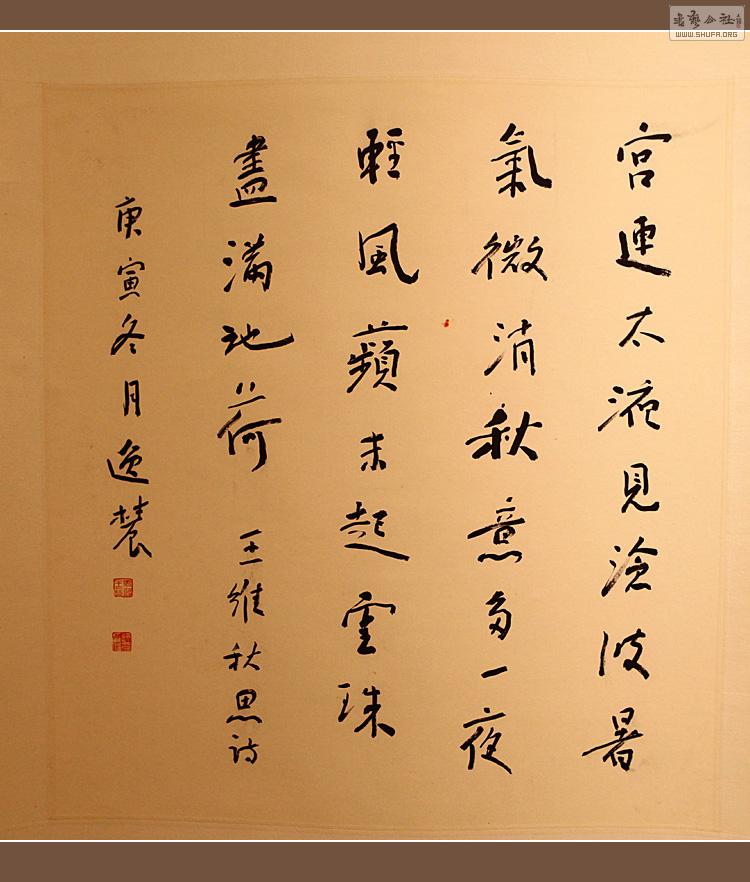 書藝公社
WWW.SHUFA.ORG
宮連太液見滄波暑
氣微消秋意多一夜
輕風蘋末起露珠
盡滿地荷 王維秋思詩
庚寅冬月逸辳